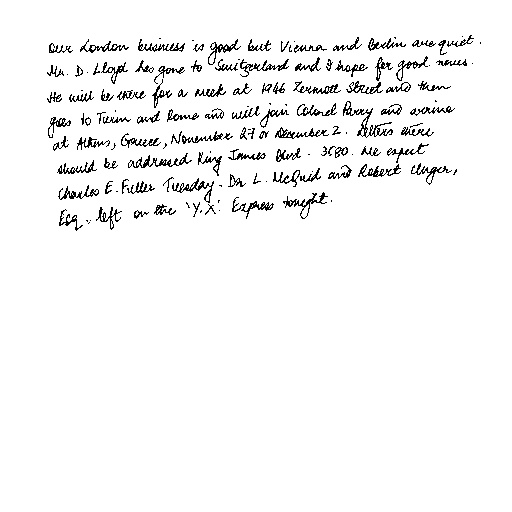 Our London business is good but Vienna and Berlin are quiet.
Mr. D. Lloyd has gone to Switzerland and I hope for good news.
He will be there for a week at 1946 Zermott Street and then
goes to Turin and Rome and will join Colonel Parry and arrive
at Athens, Greece, November 27 or December 2. Letters there
should be addressed King James Blvd. 3580. We expect
Charles E. Fuller Tuesday. Dr. L. McQuid and Robert Unger,
Esq., left on the 'Y.X.' Express tonight.